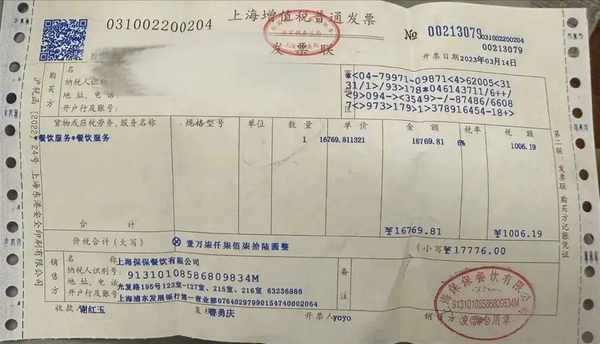 031002200204
上海增值税普通发票
发票联
№ 00213079
031002200204
00213079
开票日期：2023年03月14日
购买方
纳税人识别号：
地址、电话：
开户行及账号：
*<04-79971-09871<4>62005<31
31/1>/93>178*046143711/6++/
<9>094-><3549>-/-87486/6608
7<>973>179>1>378916454-18+>
货物或应税劳务、服务名称 规格型号 单位 数量 单价 金额 税率 税额
*餐饮服务*餐饮服务 1 16769.811321 16769.81 6% 1006.19
合计 ¥16769.81 ¥1006.19
价税合计（大写） ⊗壹万柒仟柒佰柒拾陆圆整 （小写）¥17776.00
销售方
名称：上海保保餐饮有限公司
纳税人识别号：91310108586809834M
地址、电话：光复路195号122室-127室、215室、216室 63236886
开户行及账号：上海浦东发展银行第一营业部07640297990154740002064
备注
收款人：谢红玉 复核：曹勇庆 开票人：yoyo 销售方
上海保保餐饮有限公司
91310108586809834M
发票专用章
第二联：发票联 购买方记账凭证
上海东港安全印刷有限公司